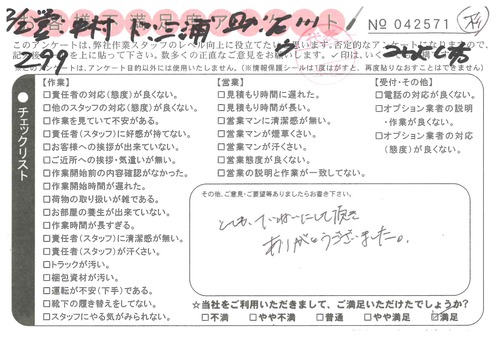 2/2 営:井村 ド:三浦 助:石川
No 042571
お客様不満足度アンケート
このアンケートは、弊社作業スタッフのレベル向上に役立てたい
思います。否定的なアンケートになりますので、
299
ださい。✓印は、
に✓を上に貼って下さい。数多くの正直なご意見をお願いします。
アンケートは、アンケート目的以外には使用いたしません。(※情報保護シールは1度はがすと、再度貼りなおすことはできません)
●チェックリスト
【作業】
□責任者の対応(態度)が良くない。
□他のスタッフの対応(態度)が良くない。
□作業を見ていて不安がある。
□責任者(スタッフ)に好感が持てない。
□お客様への挨拶が出来ていない。
□ご近所への挨拶・気遣いが無い。
□作業開始前の内容確認がなかった。
□作業開始時間が遅れた。
□荷物の取り扱いが雑である。
□お部屋の養生が出来ていない。
□作業時間が長すぎる。
□責任者(スタッフ)に清潔感が無い。
□責任者(スタッフ)が汗くさい。
□トラックが汚い。
□梱包資材が汚い。
□運転が不安(下手)である。
□靴下の履き替えをしてない。
□スタッフにやる気がみられない。
【営業】
□見積もり時間に遅れた。
□見積もり時間が長い。
□営業マンに清潔感が無い。
□営業マンが煙草くさい。
□営業マンが汗くさい。
□営業態度が良くない。
□営業の説明と作業が一致してない。
【受付・その他】
□電話の対応が良くない。
□オプション業者の説明
・作業が良くない。
□オプション業者の対応
(態度)が良くない。
その他、ご意見・ご要望等ありましたらお書き下さい。
とても、ていねいにして頂き
ありがとうございました。
☆当社をご利用いただきまして、ご満足いただけたでしょうか?
□不満 □やや不満 □普通 □やや満足 ☑満足